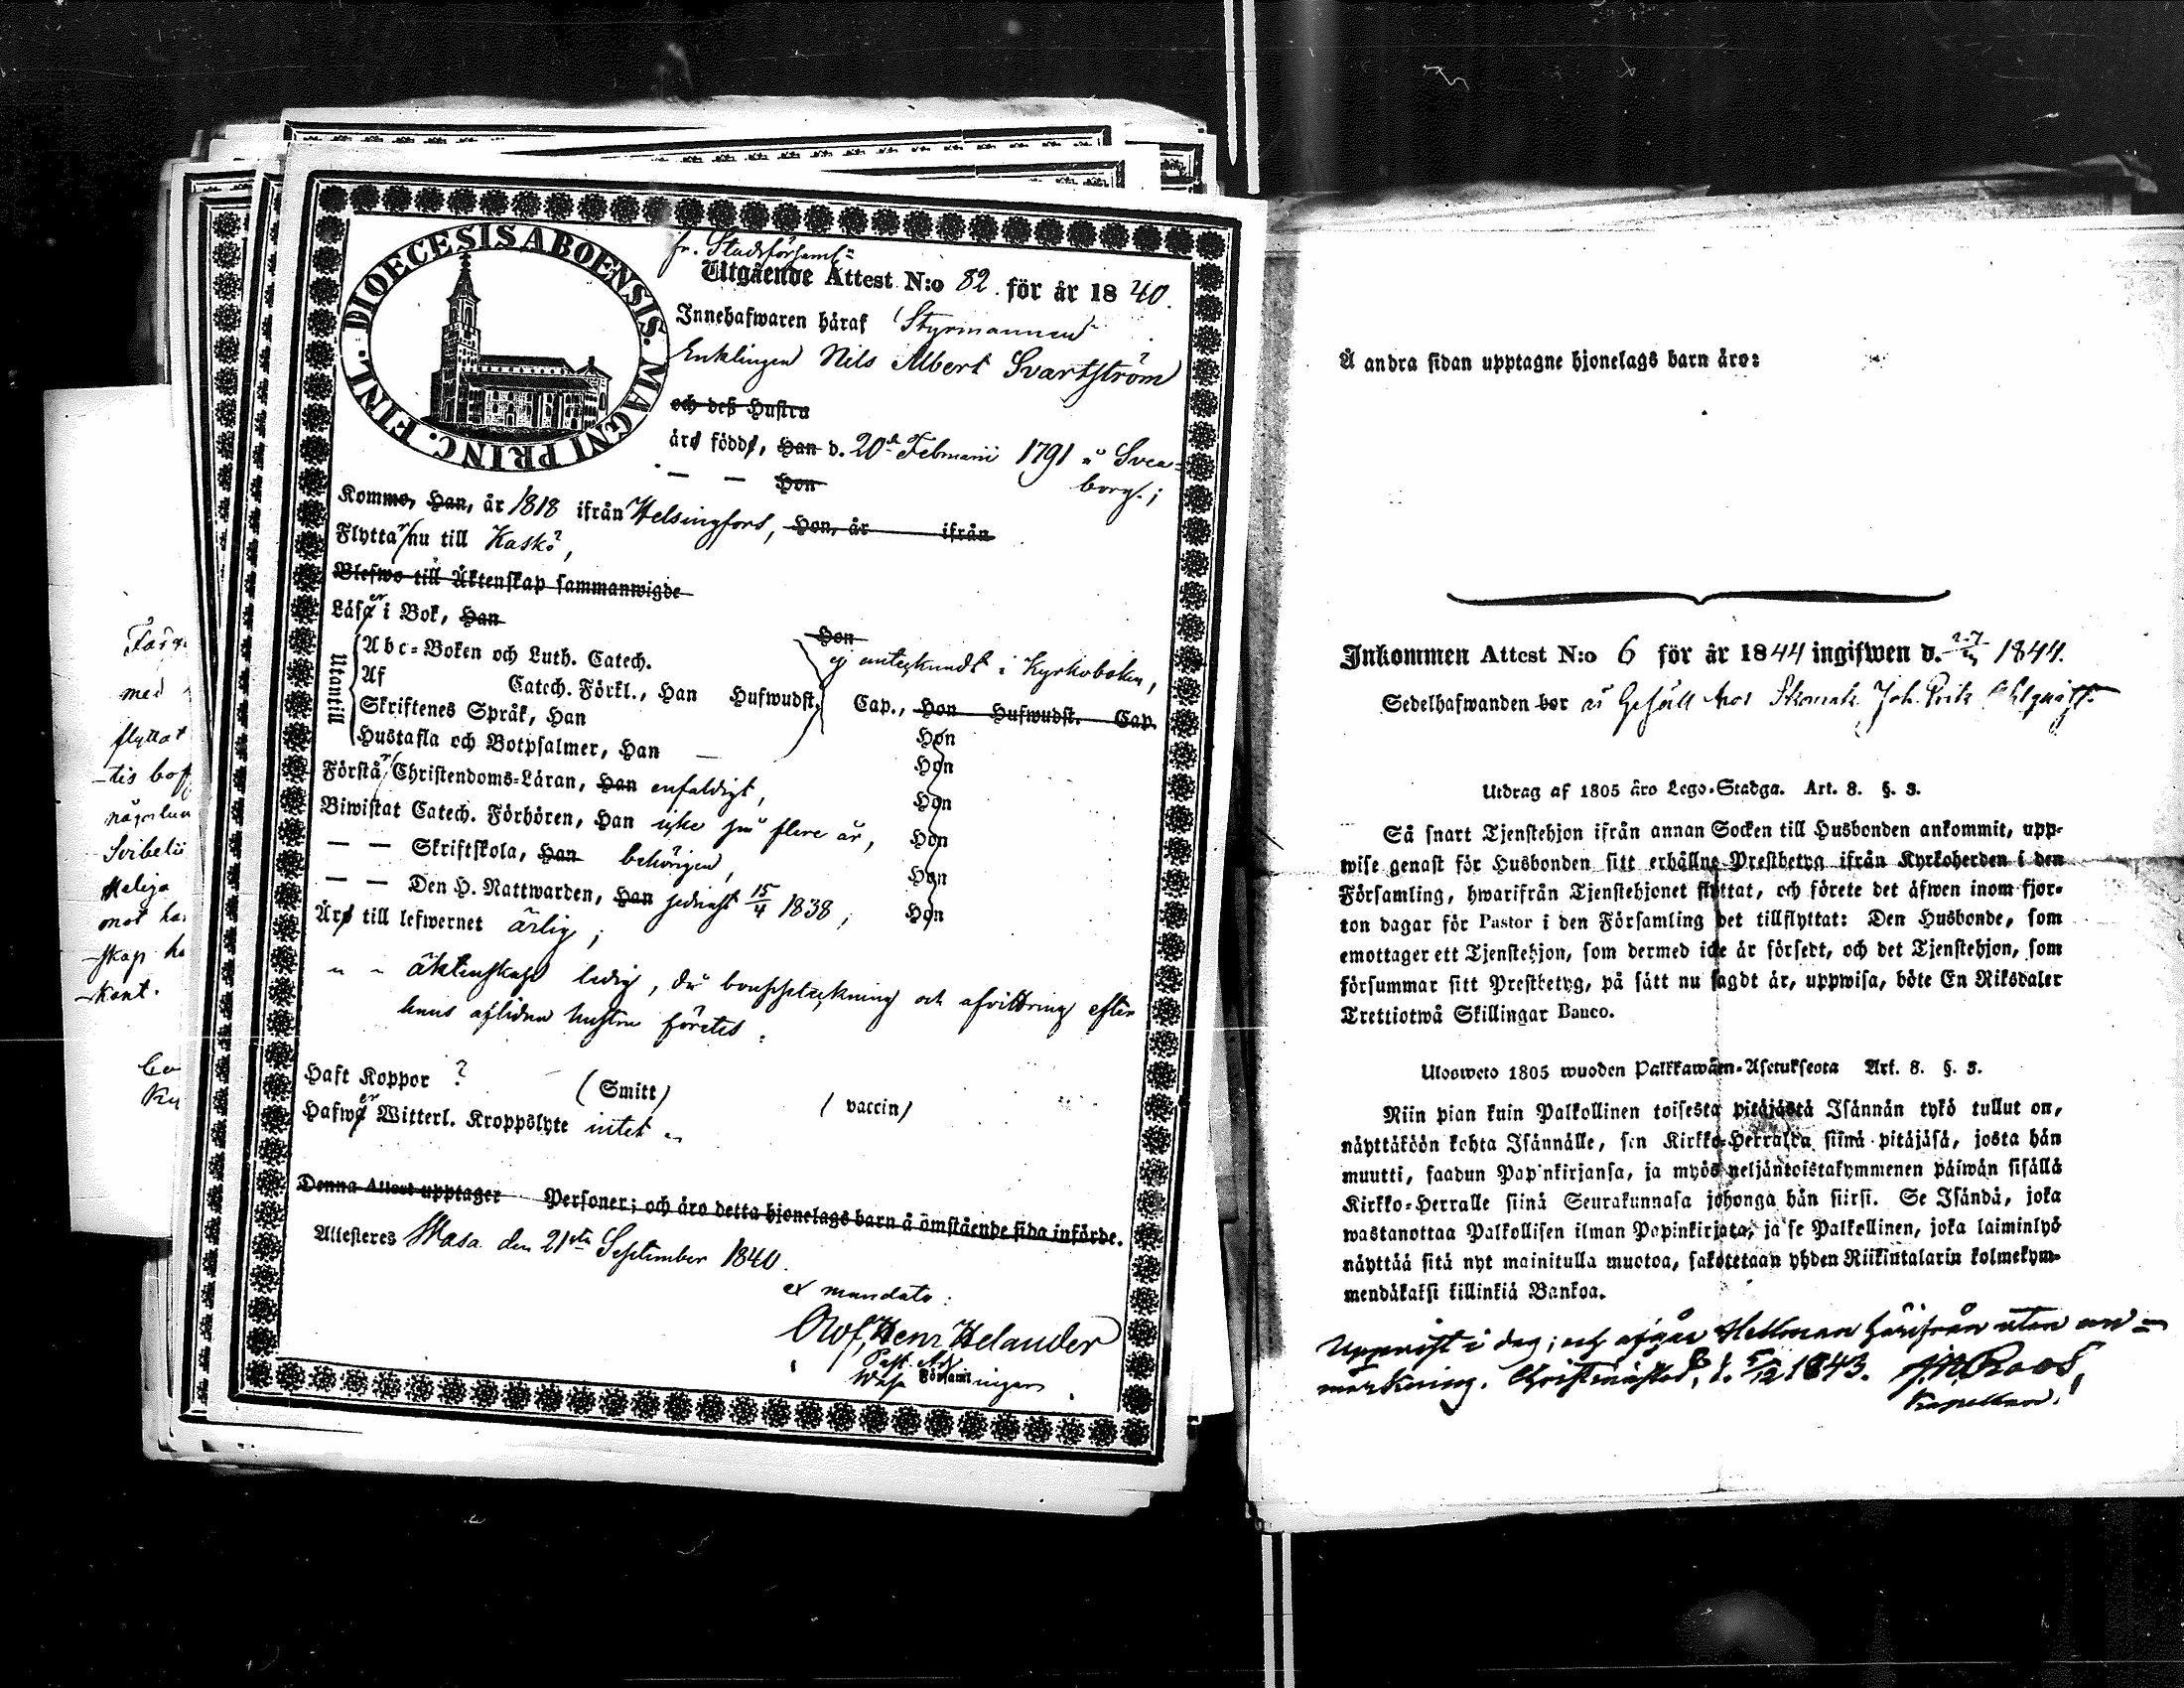 Fasta
med
flyttat
-tis bof
någorlun
Svibelii
Heliga
mot ha
-skap ha
-kant.
Co
Ky
DIOECESIS ABOENSIS. MAGNI PRINC. FINL.
fr. Stadsförsaml=
Utgående Attest N:o 82. för år 1840.
Innehafwaren häraf Styrmannen
Enklingen Nils Albert Svartström
och deß Hustru
äro född, Han d. 20de Februarii 1791 å Svea=
— — Hon borg.;
Kommo, Han, år 1818 ifrån Helsingfors, Hon, år ifrån
Flyttar nu till Kaskö,
Blefwo till Äktenskap sammanwigde
Läser i Bok, Han Hon
Utantill
Abc-Boken och Luth. Catech. ej antecknadt i Kyrkoboken,
Af Catech. Förkl., Han Hufwudst. Cap., Hon Hufwudst. Cap.
Skriftenes Språk, Han Hon
Hustafla och Botpsalmer, Han — Hon
Förstår Christendoms-Läran, Han enfaldigt, Hon
Biwistat Catech. Förhören, Han icke på flere år, Hon
— — Skriftskola, Han behörigen, Hon
— — Den H. Nattwarden, Han sednast 15/4 1838; Hon
Är till lefwernet ärlig;
" " äktenskap ledig, då bouppteckning och afvittring efter
hans aflidna hustru företes.
Haft Koppor ? (Smitt) (vaccin)
Hafwer Witterl. Kroppslyte intet "
Denna Attest upptager Personer; och äro detta hjonelags barn å omstående sida införde.
Attesteres Wasa den 21sta September 1840.
ex mandato:
Olof Henr Helander
Past. Adj.
Wasa Församlingar
Å andra sidan upptagne hjonelags barn äro:
Inkommen Attest N:o 6 för år 1844 ingifwen d. 1844.
Sedelhafwanden bor Gesäll hos Skomak. Joh. Erik Ahlqvist.
Utdrag af 1805 års Lego-Stadga. Art. 8. §. 3.
Så snart Tjenstehjon ifrån annan Socken till Husbonden ankommit, upp-
wise genast för Husbonden sitt erhållne Prestbetyg ifrån Kyrkoherden i den
Församling, hwarifrån Tjenstehjonet flyttat, och förete det äfwen inom fjor-
ton dagar för Pastor i den Församling det tillflyttat: Den Husbonde, som
emottager ett Tjenstehjon, som dermed icke är försedt, och det Tjenstehjon, som
försummar sitt Prestbetyg, på sätt nu sagdt är, uppwisa, böte En Riksdaler
Trettiotwå Skillingar Banco.
Uloosweto 1805 wuoden Palkkawäen-Asetuksesta Art. 8. §. 3.
Niin pian kuin Palkollinen toisesta pitäjästä Isännän tykö tullut on,
näyttäköön kohta Isännälle, sen Kirkko-Herralta siinä pitäjäsä, josta hän
muutti, saadun Papinkirjansa, ja myös neljäntoistakymmenen päiwän sisällä
Kirkko-Herralle siinä Seurakunnasa johonga hän siirsi. Se Isändä, joka
wastanottaa Palkollisen ilman Papinkirjata, ja se Palkollinen, joka laiminlyö
näyttää sitä nyt mainitulla muotoa, sakotetaan yhden Riikintalarin kolmekym-
mendäkaksi killinkiä Bankoa.
Uppvist i dag; och afgår Hellman härifrån utan an=
märkning. Christinæstad, d. 5/12 1843. J. N. Roos,
Kapellan.